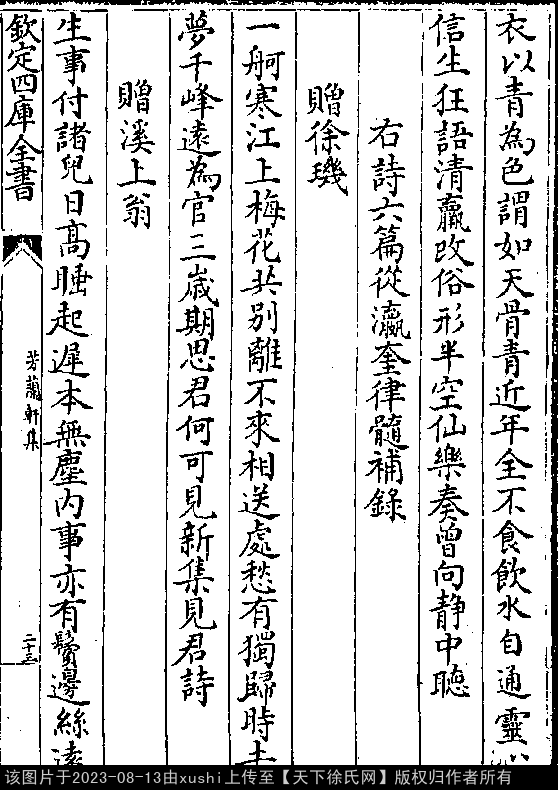 衣以青為色謂如天骨青近年全不食飲水自通靈
信生狂語清羸改俗形半空仙樂奏曾向静中聽
右詩六篇從瀛奎律髓補錄
贈徐璣
一舸寒江上梅花共别離不來相送處愁有獨歸時
夢千峰遠為官三歲期思君何可見新集見君詩
贈溪上翁
生事付諸兒日髙睡起遲本無塵内事亦有鬢邊絲
欽定四庫全書
芳蘭軒集
二十三
该图片于2023-08-13由xushi上传至【天下徐氏网】版权归作者所有